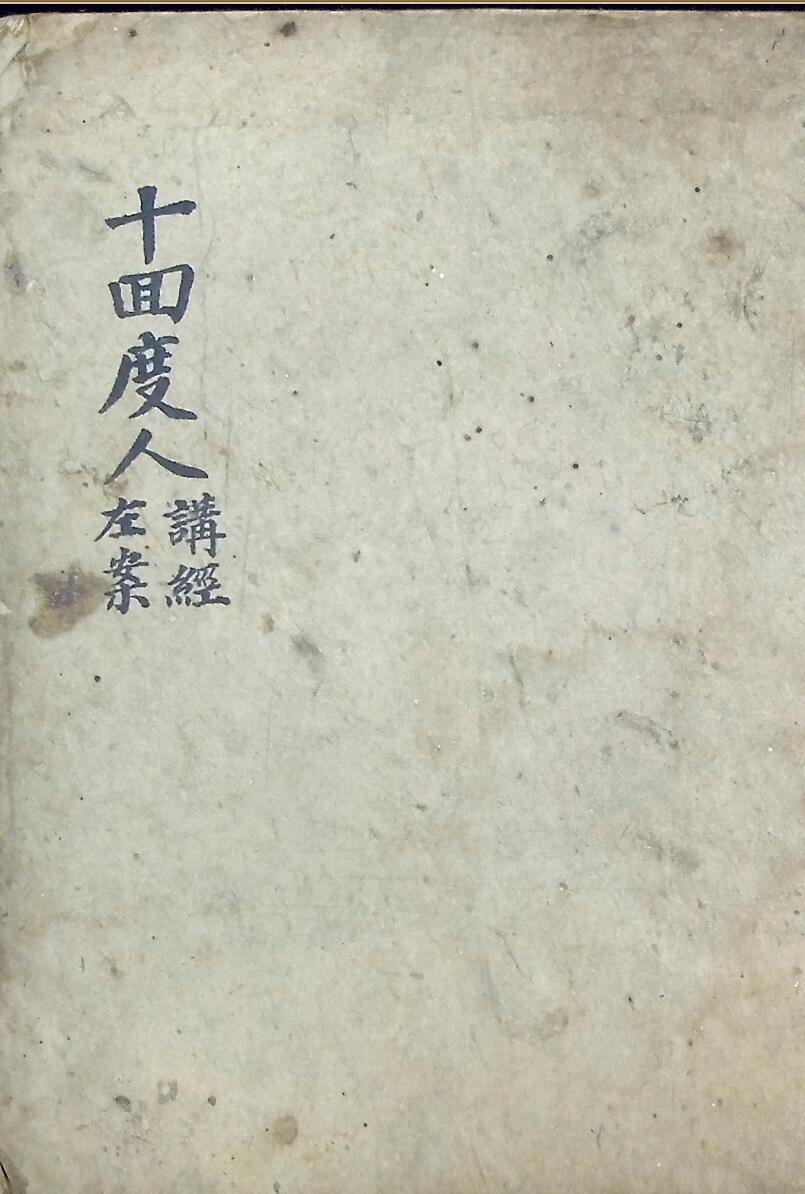 十囬度人
講經
左案